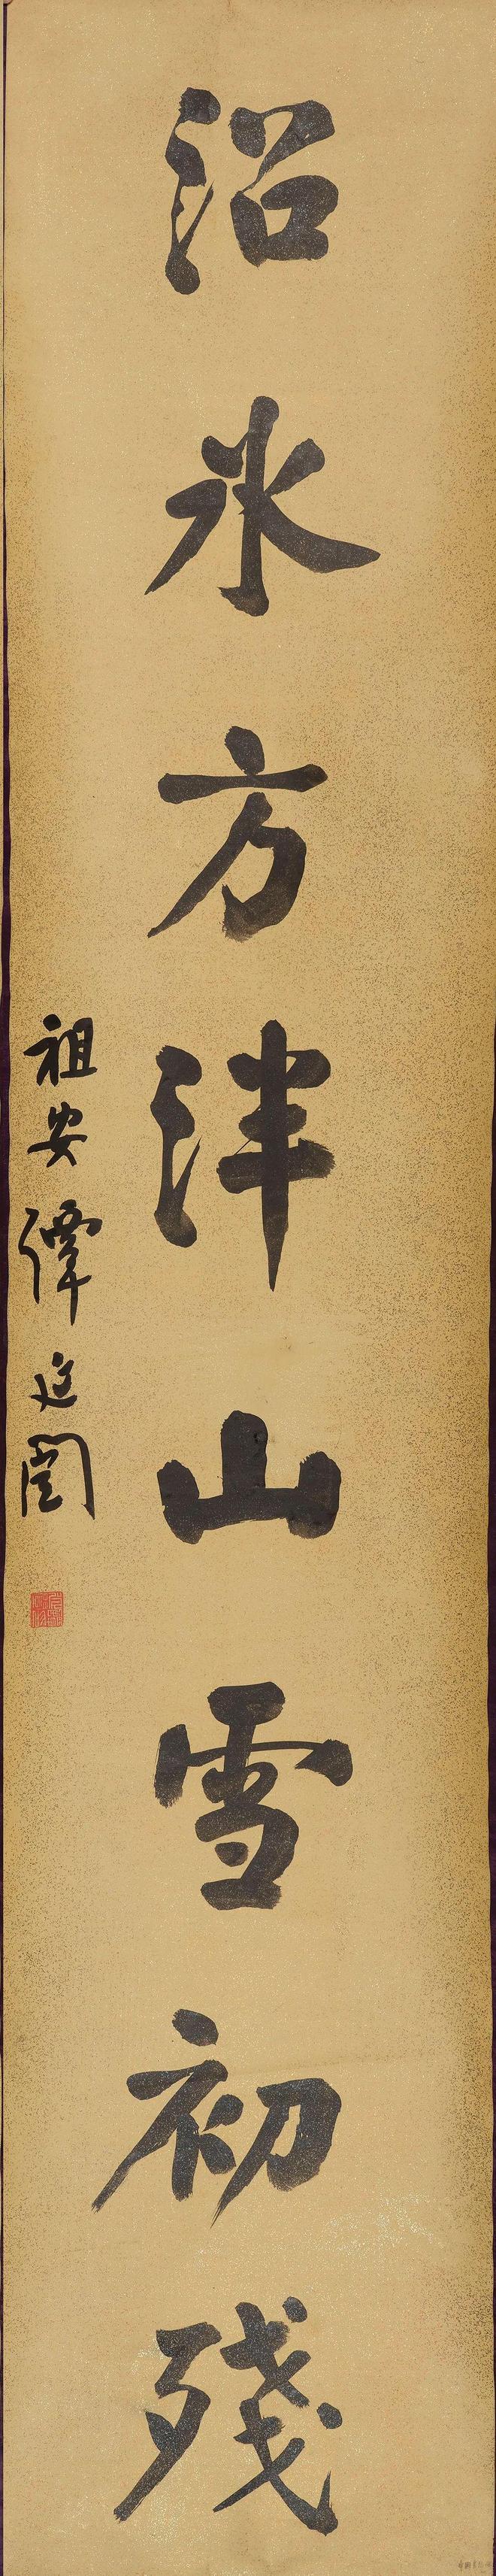 沼冰方泮山雪初殘
祖安譚延闓